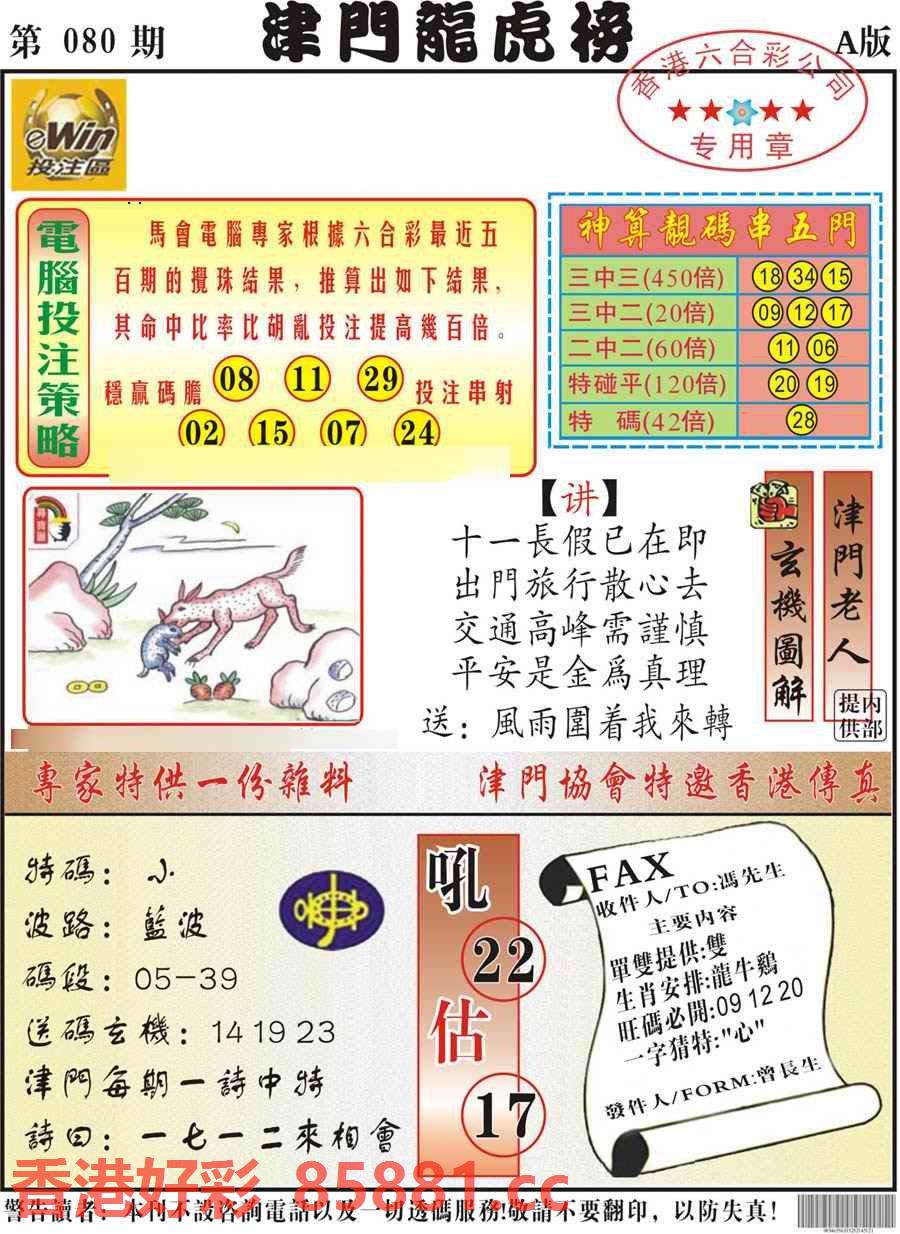 第 080 期
津門龍虎榜
A版
香港六合彩公司
★★★★
专用章
eWin
投注區
電腦投注策略
馬會電腦專家根據六合彩最近五
百期的攪珠結果，推算出如下結果，
其命中比率比胡亂投注提高幾百倍。
穩贏碼膽 08 11 29 投注串射
02 15 07 24
神算靚碼串五門
三中三(450倍) 18 34 15
三中二(20倍) 09 12 17
二中二(60倍) 11 06
特碰平(120倍) 20 19
特 碼(42倍) 28
尋寶圖
【讲】
十一長假已在即
出門旅行散心去
交通高峰需謹慎
平安是金爲真理
送：風雨圍着我來轉
玄機圖解
津門老人
内部提供
專家特供一份雜料
津門協會特邀香港傳真
特碼：小
波路：藍波
碼段：05-39
送碼玄機：14 19 23
津門每期一詩中特
詩曰：一七一二來相會
吼
22
估
17
FAX
收件人/TO:馮先生
主要内容
單雙提供:雙
生肖安排:龍牛鷄
旺碼必開:09 12 20
一字猜特:"心"
發件人/FORM:曾長生
香港好彩 85881.cc
警告讀者：本刊不設咨詢電話以及一切透碼服務!敬請不要翻印，以防失真!